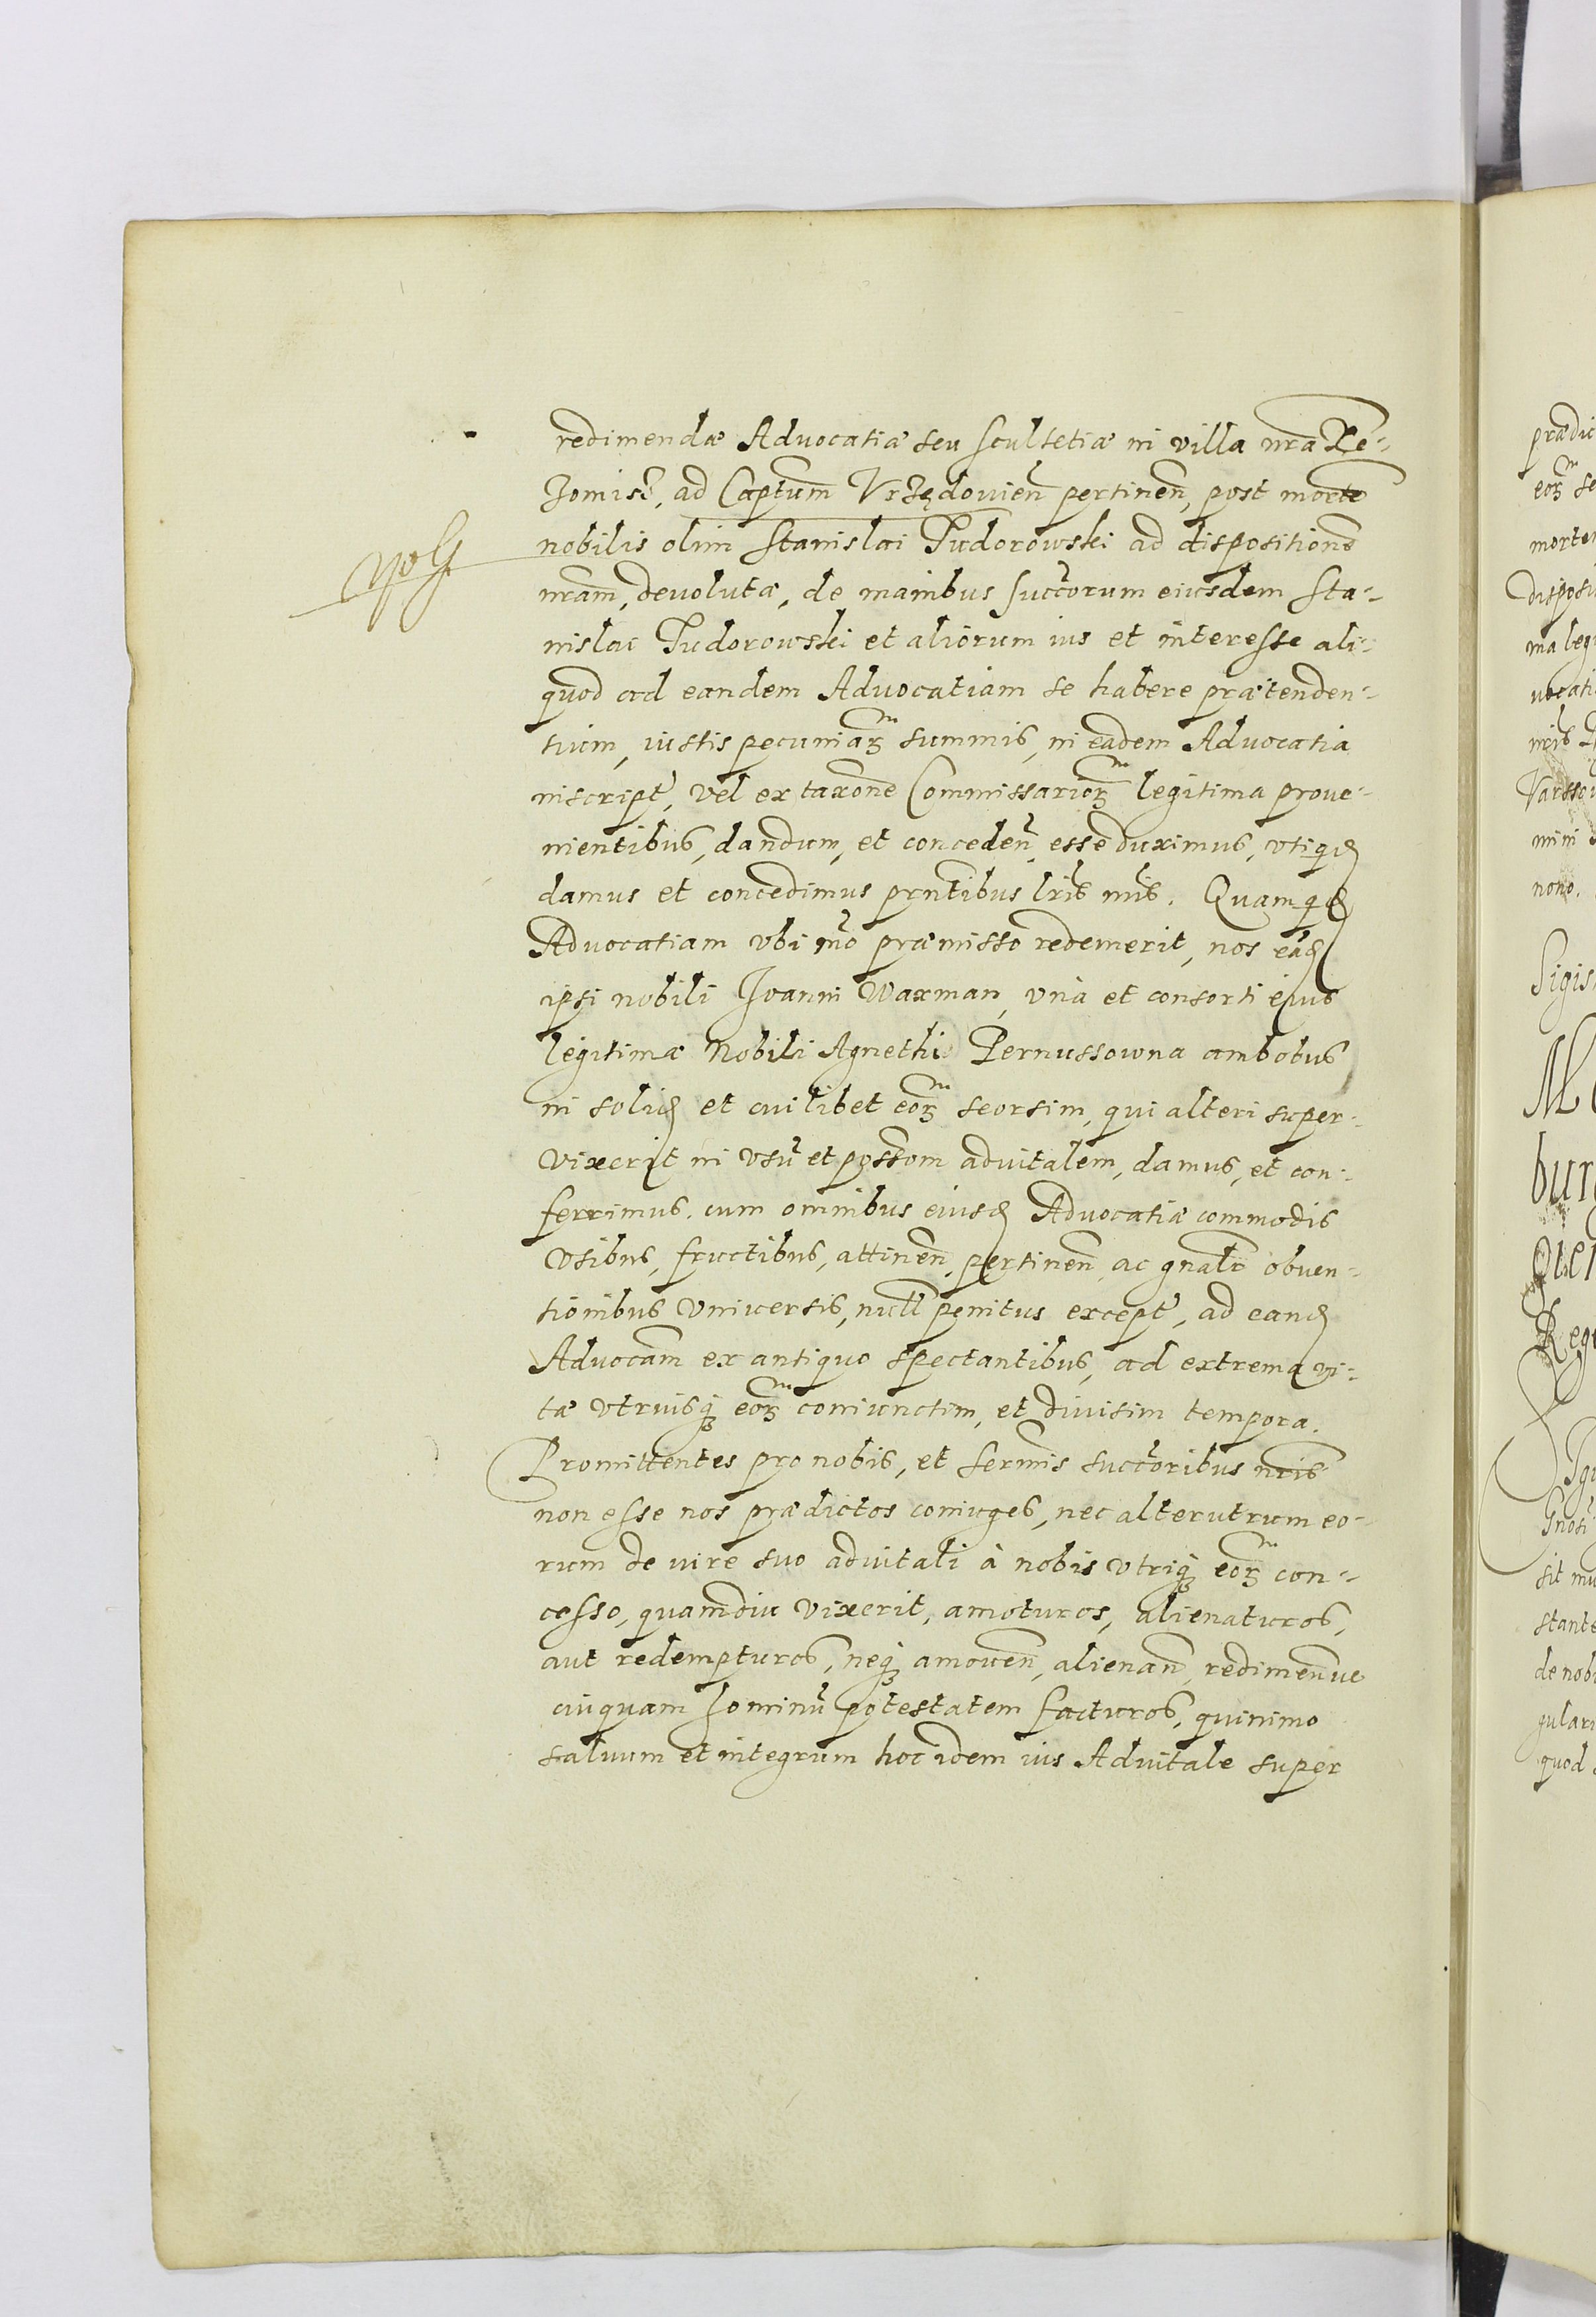 redimendæ Advocatiæ seu Scultetiæ in villa nr̃a Xe-
ad Capt̃um Vrzędouien̄ pertinen̄, post morte
nobilis olim Stanislai Tudorowski ad dispositione
nr̃am, deuolutæ, de manibus succ̃orum eiusdem Sta-
nislai Tudorowski et aliorum ius et interesse ali-
quod ad eandem Advocatiam se habere prætenden-
tium, iustis pecuniaꝝ summis, in eadem Advocatia
inscript̃, vel ex taxon̄e Commissarioꝝ legitima proue-
nientibus, dandum, et conceden̄ esse duximus, vtiqꝫ
damus et concedimus pr̃ntibus lr̃is nr̃is. Quamqꝫ
Advocatiam vbi mõ præmisso redemerit, nos eaď
ipsi nobili Joanni Waxman, vnà et consorti eius
legitimæ Nobili Agnethi Pernussowna ambobus
in soliď et cuilibet eoꝝ seorsim, qui alteri super-
vixerit in vsũ et poss̃om aduitalem, damus, et con-
ferrimus. cum omnibus eiusď Advocatiæ commodis
vsibus, fructibus, attinen̄, pertinen̄, ac gnãlr̃ obuen-
tionibus vniuersis, null̃ penitus except̃, ad eanď
Advocãm ex antiquo spectantibus, ad extrema vi-
tæ vtriusqꝫ eoꝝ coniunctim, et diuisim tempora.
Promittentes pro nobis, et Serm̃is succ̃oribus nr̃is
non esse nos prædictos coniuges, nec alterutrum eo-
rum de iure suo aduitali à nobis vtriqꝫ eoꝝ con-
cesso, quamdiu vixerit, amoturos, alienaturos,
aut redempturos, neqꝫ amouen̄, alienan̄, redimen̄ue
cuiquam hominũ potestatem facturos, quinimo
saluum et integrum hoc idem ius Aduitale super